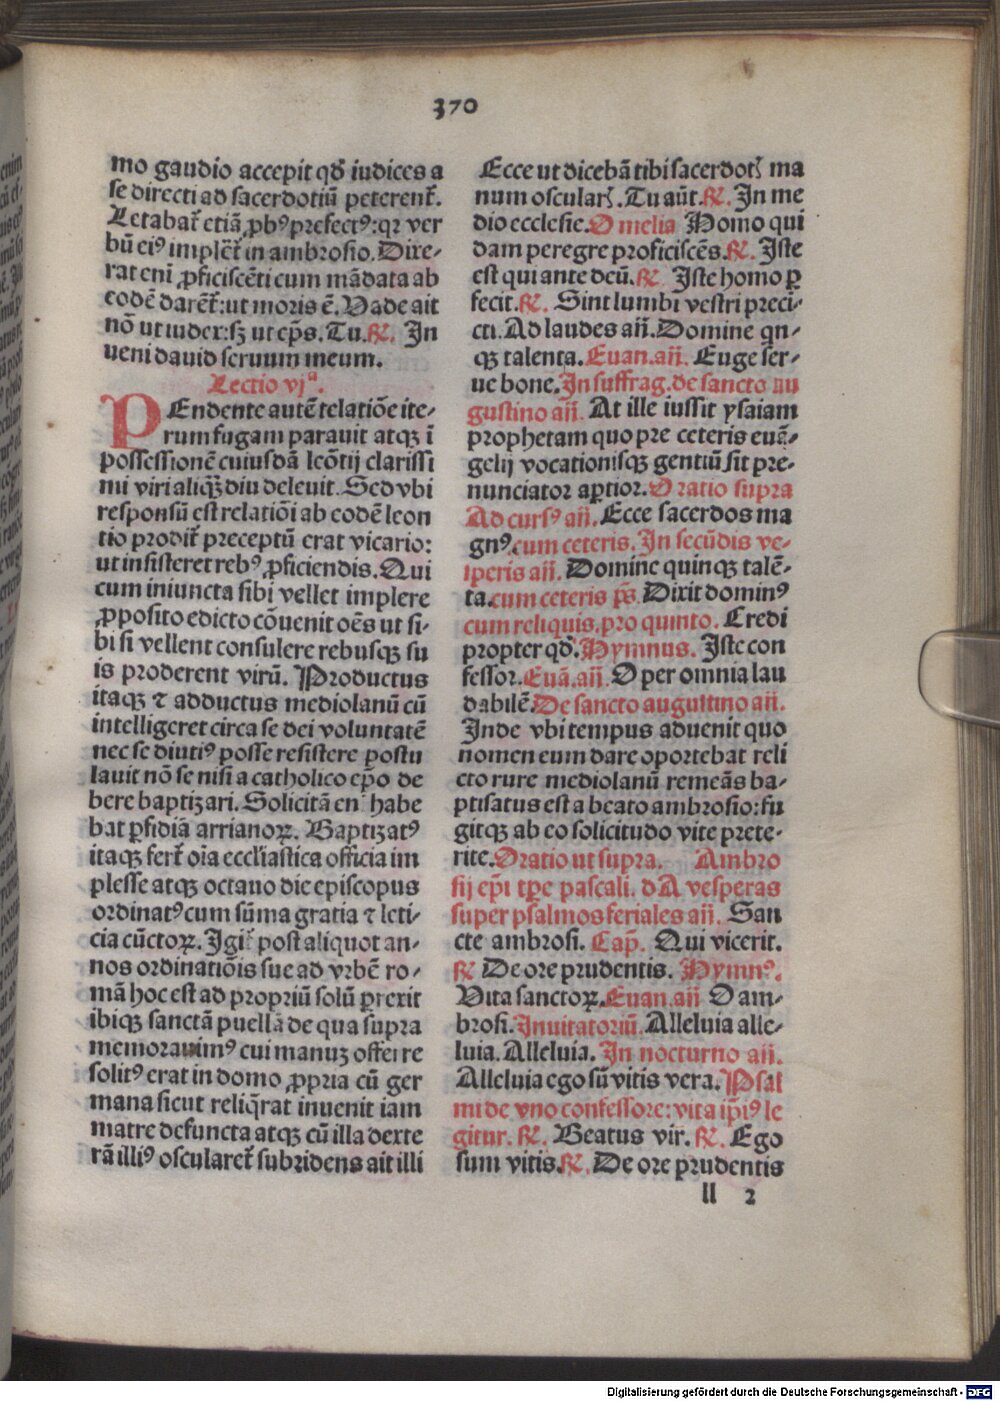 370
mo gaudio accepit qđ iudices a
se directi ad sacerdotiũ peterent̃.
Letabat̃ etiã ꝓbꝰ prefectꝰ: qꝛ ver
bũ eiꝰ implēt̃ in ambrosio. Dixe-
rat eni ꝓficiscēti cum mãdata ab
eodē darēt̃: ut moris ē. Vade ait
nō ut iudex: sꝫ ut ep̄s. Tu. ℟. In
veni david servum meum.
Lectio vjᵃ.
PEndente autē relatiõe ite-
rum fugam paravit atqꝫ ī
possessionē cuiusdã leõtij clarissi
mi viri aliqꝫ̄ diu deleuit. Sed vbi
responsũ est relatiõi ab eodē leon
tio prodit̃ preceptũ erat vicario:
ut insisteret rebꝰ ꝓficiendis. Qui
cum iniuncta sibi vellet implere
ꝓposito edicto cõvenit oēs ut si-
bi si vellent consulere rebusqꝫ su
is proderent virũ. Productus
itaqꝫ ⁊ adductus mediolanũ cũ
intelligeret circa se dei voluntatē
nec se diutiꝰ posse resistere postu
lauit nō se nisi a catholico ep̄o de
bere baptizari. Solicitã en̄ habe
bat ꝑfidiã arrianoꝝ. Baptizatꝰ
itaqꝫ fert̃ oīa eccl̄iastica officia im
plesse atqꝫ octauo die episcopus
ordinatꝰ cum sũma gratia ⁊ leti-
cia cũctoꝝ. Igit̃ post aliquot an-
nos ordinatiõis sue ad vrbē ro-
mã hoc est ad propriũ solũ ꝑrexit
ibiqꝫ sanctã puellã de qua supra
memorauimꝰ cui manuꝫ offerre
solitꝰ erat in domo ꝓpria cũ ger
mana sicut reliq̄rat inuenit iam
matre defuncta atqꝫ cũ illa dexte
rã illiꝰ oscularet̃ subridens ait illi
Ecce ut dicebã tibi sacerdotꝭ ma
num oscularꝭ. Tu aũt. ℟. In me
dio ecclesie. Omelia Homo qui
dam peregre proficiscēs. ℟. Iste
est qui ante deũ. ℟. Iste homo ꝑ
fecit. ℟. Sint lumbi vestri preci-
cti. Ad laudes añ. Domine qn-
qꝫ talenta. Euan. añ. Euge ser-
ue bone. In suffrag. de sancto au
gustino añ. At ille iussit ysaiam
prophetam quo pre ceteris euã-
gelij vocationisqꝫ gentiũ sit pre-
nunciator aꝑtior. Oratio supra
Ad cursꝰ añ. Ecce sacerdos ma
gnꝰ. cum ceteris. In secũdis ve-
speris añ. Domine quinqꝫ talē-
ta. cum ceteris p̄s. Dixit dominꝰ
cum reliquis. pro quinto. Credi
propter qđ. Hymnus. Iste con
fessor. Euã. añ. O per omnia lau
dabilē. De sancto augustino añ.
Inde vbi tempus aduenit quo
nomen eum dare oportebat reli
cto rure mediolanũ remeãs ba-
ptisatus est a beato ambrosio: fu
gitqꝫ ab eo solicitudo vite prete-
rite. Oratio ut supra. Ambro
sij ep̄i tꝑe pascali. dA vesperas
super psalmos feriales añ. San
cte ambrosi. Cap̄. Qui vicerit.
℟ De ore prudentis. Hymnꝰ.
Vita sanctoꝝ. Euan. añ O am-
brosi. Inuitatoriũ. Alleluia alle-
luia. Alleluia. In nocturno añ.
Alleluia ego sũ vitis vera. Psal
mi de vno confessore: vita ip̄iꝰ le
gitur. ℟. Beatus vir. ℟. Ego
sum vitis. ℟. De ore prudentis
ll 2
Digitalisierung gefördert durch die Deutsche Forschungsgemeinschaft - DFG